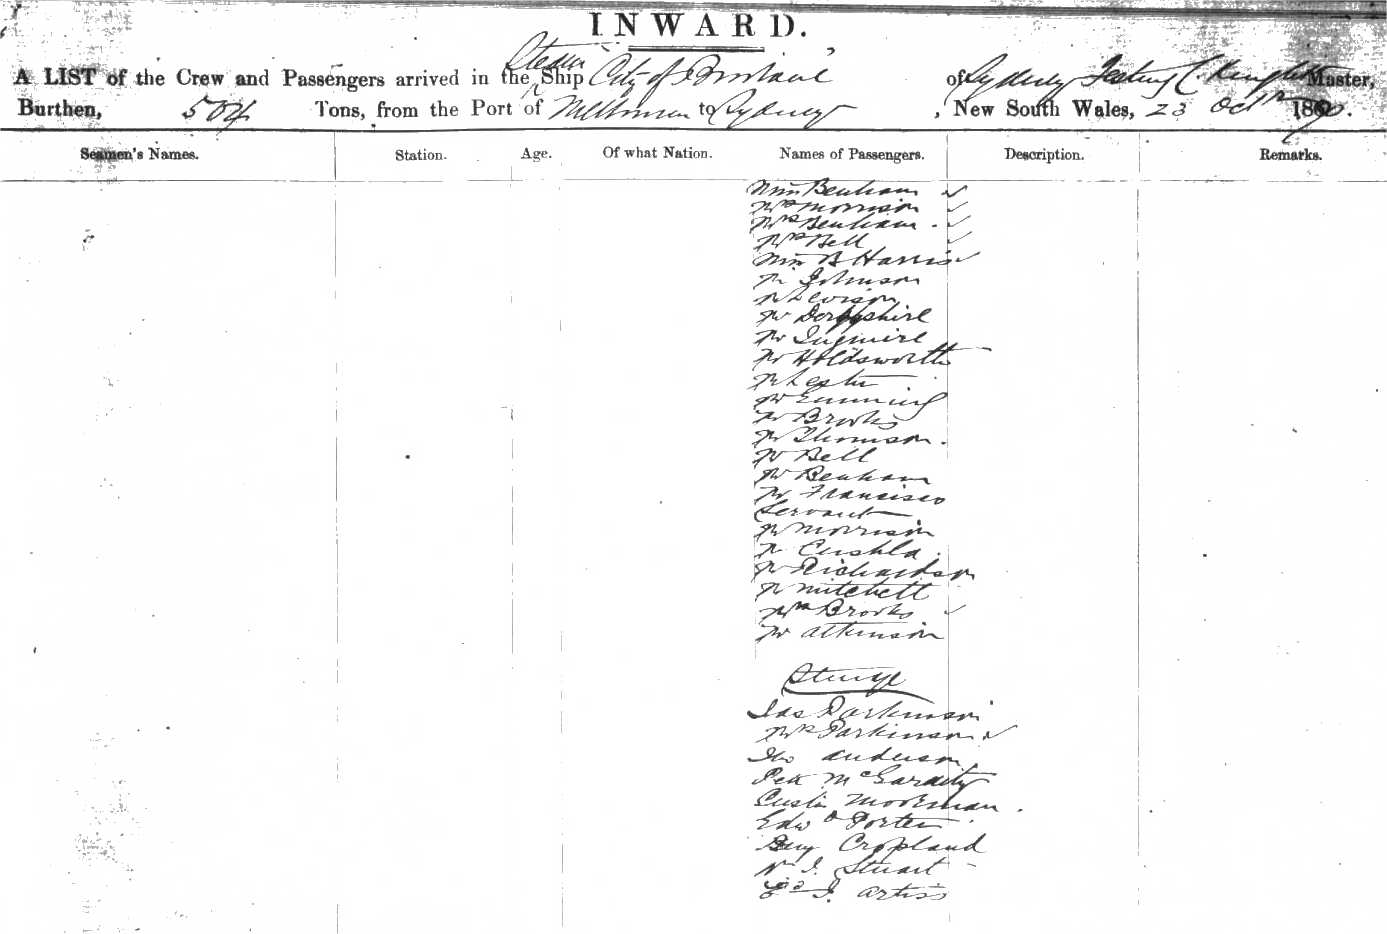 INWARD.
A LIST of the Crew and Passengers arrived in the Steam Ship City of Brisbane of Sydney Master,
Burthen, 504 Tons, from the Port of Melbourne to Sydney, New South Wales, 23 Oct 1870.
Seamen's Names. Station. Age. Of what Nation. Names of Passengers. Description. Remarks.
Miss Benham
Mrs Morrison
Mrs Benham
Mrs Bell
Miss B Harris
Mr Johnson
Mr Levison
Mr Derbyshire
Mr
Mr Holdsworth
Mr Lester
Mr
Mr Brooks
Mr Thomson
Mr Bell
Mr Benham
Mr Francisco
Servant
Mr Morrison
Mr
Mr Richardson
Mr Mitchell
Mrs Brooks
Mr Atkinson
Steerage
Jas Parkinson
Mrs Parkinson
Anderson
McGaraity
Mookman
Edwd Porter
Cropland
Stuart
J. Artiss